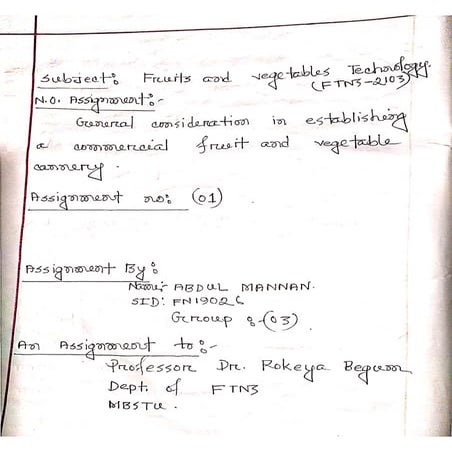 Subject: Fruits and vegetables Technology.
(FTNS-2103)
N.O. Assignment:-
General consideration in establishing
a commercial fruit and vegetable
cannery.
Assignment no: (01)
Assignment By:
Name: ABDUL MANNAN.
SID: FN19026
Group: (03)
An Assignment to:-
Professor Dr. Rokeya Begum
Dept. of FTNS
MBSTU.